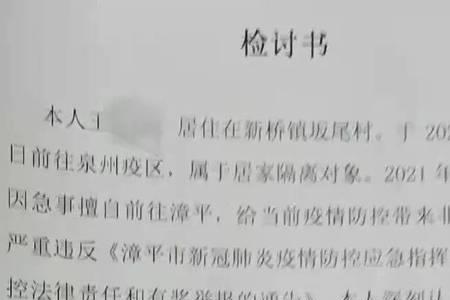 检讨书
本人王 居住在新桥镇坂尾村。于 202
日前往泉州疫区，属于居家隔离对象。2021 年
因急事擅自前往漳平，给当前疫情防控带来非
严重违反《漳平市新冠肺炎疫情防控应急指挥
控法律责任和有奖举报的通告》，本人深刻认